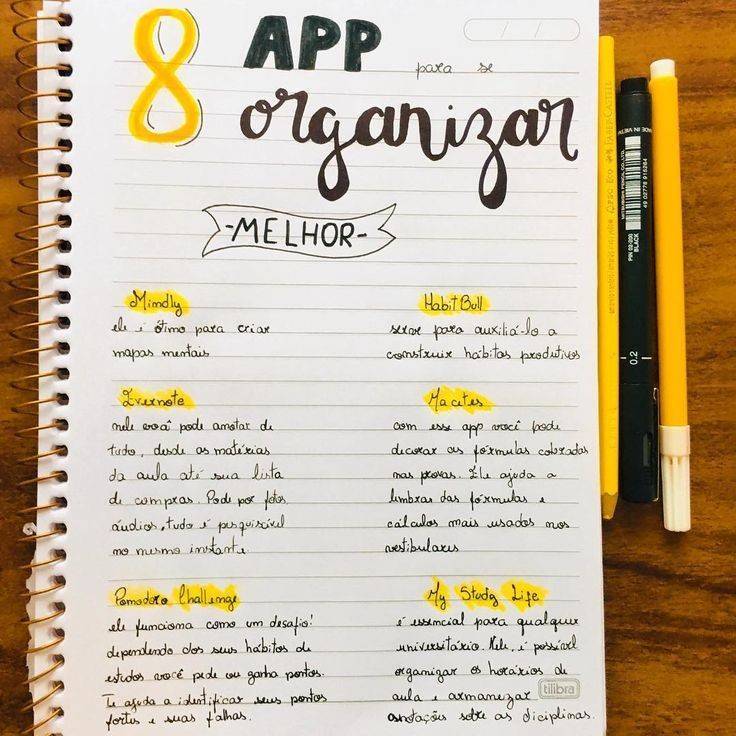 8 APP para se
organizar
-MELHOR-
Mindly
ele é ótimo para criar
mapas mentais
Evernote
nele você pode anotar de
tudo, desde as matérias
da aula até sua lista
de compras. Pode por fotos
áudios, tudo é pesquisável
no mesmo instante
Pomodoro Challenge
ele funciona como um desafio!
dependendo dos seus hábitos de
estudos você pede ou ganha pontos.
Te ajuda a identificar seus pontos
fortes e suas falhas.
HabitBull
serve para auxiliá-lo a
construir hábitos produtivos
Macetes
com esse app você pode
decorar as fórmulas cobradas
nas provas. Ele ajuda a
lembrar das fórmulas e
cálculos mais usados nos
vestibulares
My Study Life
é essencial para qualquer
universitário. Nele, é possível
organizar os horários de
aula e armanezar
anotações sobre as diciplinas.
tilibra
FABER-CASTELL
MADE IN VIETNAM
MITSUBISHI PENCIL CO. LTD
PIN 02-200
BLACK
4 902778 915264
0.2